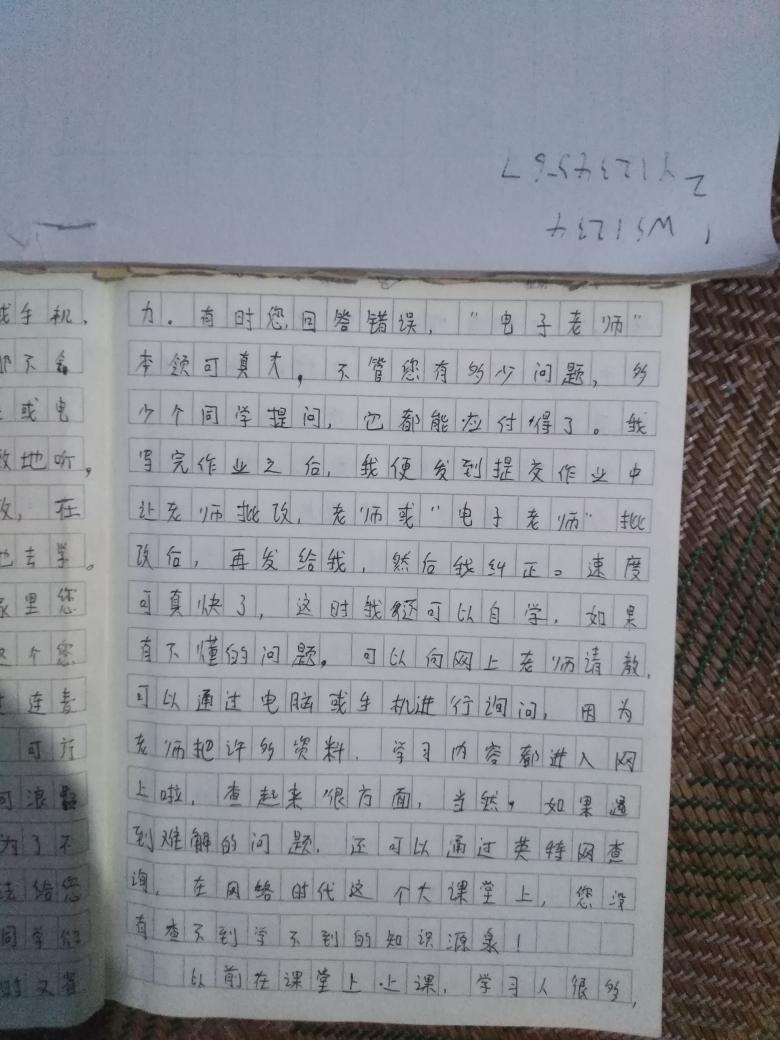 1 W51234
2 Y1234567
或手机，
力。有时您回答错误，"电子老师"
那不会
本领可真大，不管您有多少问题，多
或电
少个同学提问，它都能应付得了。我
地听，
写完作业之后，我便发到提交作业中
在
让老师批改，老师或"电子老师"批
去学。
改后，再发给我，然后我纠正。速度
家里您
可真快了，这时我还可以自学，如果
个您
有不懂的问题。可以向网上老师请教，
连麦
可以通过电脑或手机进行询问，因为
可方
老师把许多资料，学习内容都进入网
可浪
上啦，查起来很方面，当然，如果遇
为了不
到难解的问题，还可以通过英特网查
法给您
询，在网络时代这个大课堂上，您没
同学们
有查不到学不到的知识源泉！
时又
以前在课堂上上课，学习人很多，